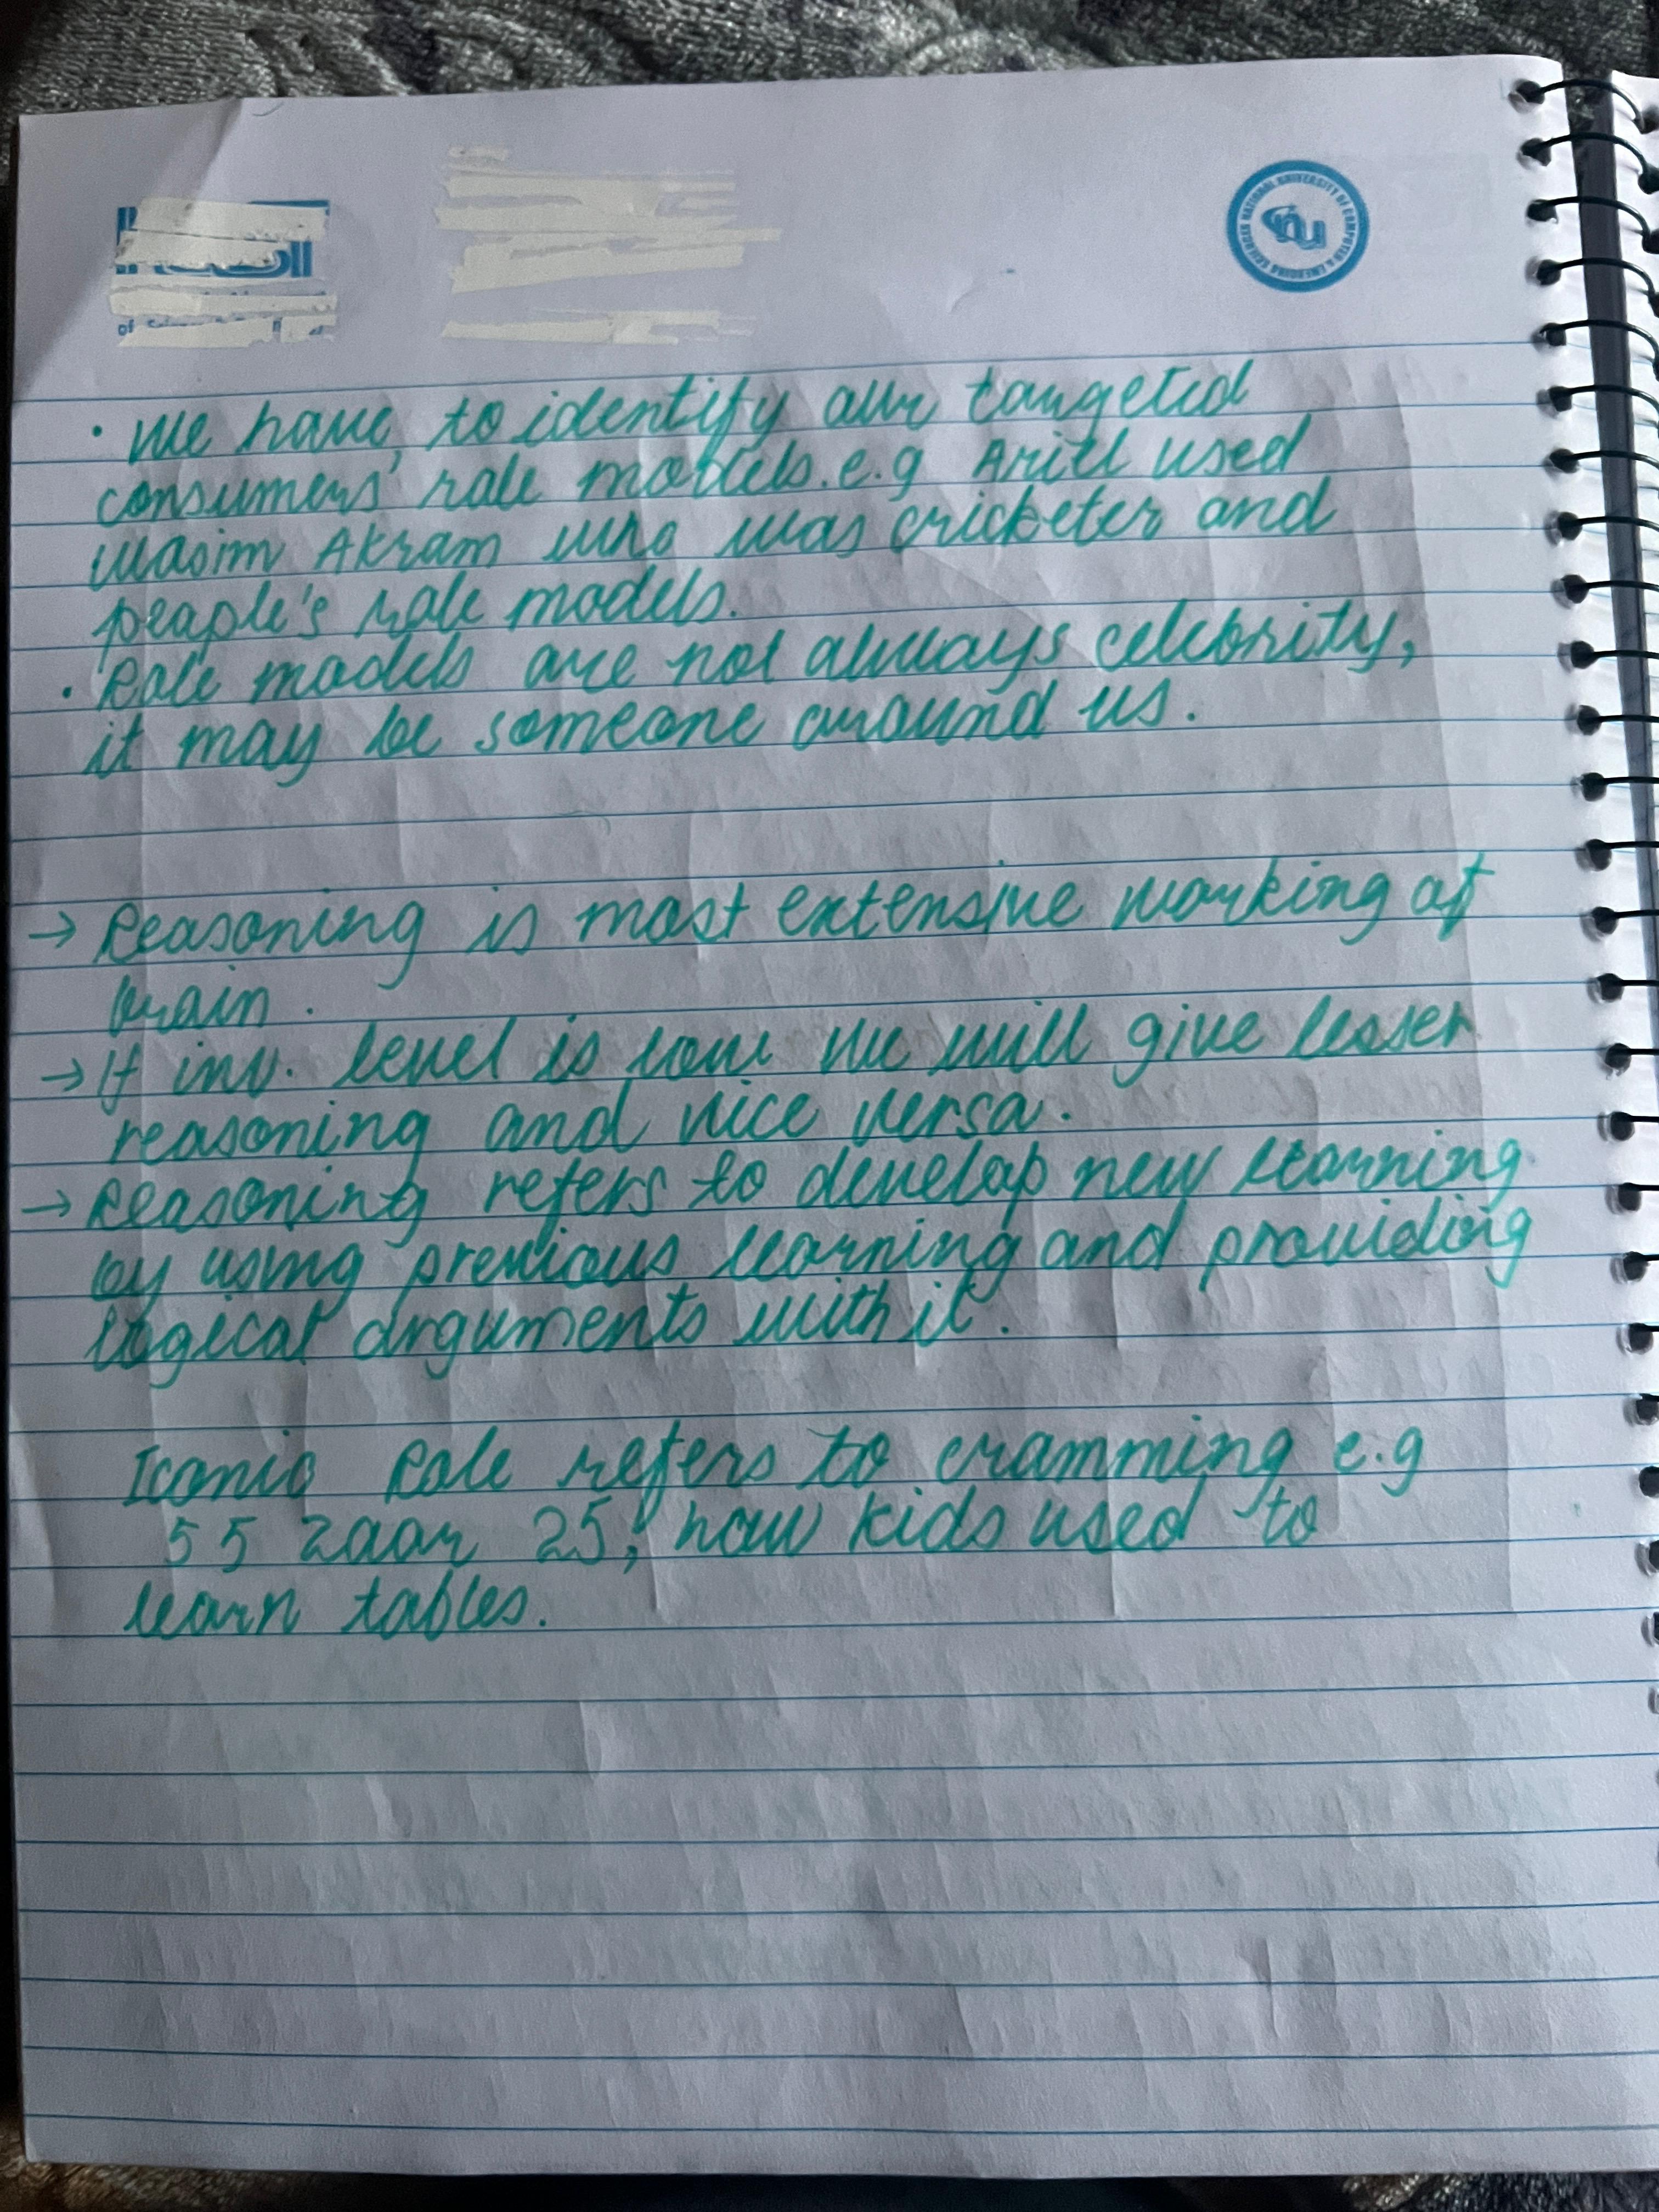 NATIONAL UNIVERSITY OF COMPUTER & EMERGING SCIENCES
nu
of
• We have to identify our targeted
consumers' role models. e.g Ariel used
Wasim Akram who was cricketer and
people's role models.
• Role models are not always celebrity,
it may be someone around us.
→ Reasoning is most extensive working of
brain.
→ If inv. level is low we will give lesser
reasoning and vice versa.
→ Reasoning refers to develop new learning
by using previous learning and providing
logical arguments with it.
Iconic Role refers to cramming e.g
5 5 zaar 25, how kids used to
learn tables.